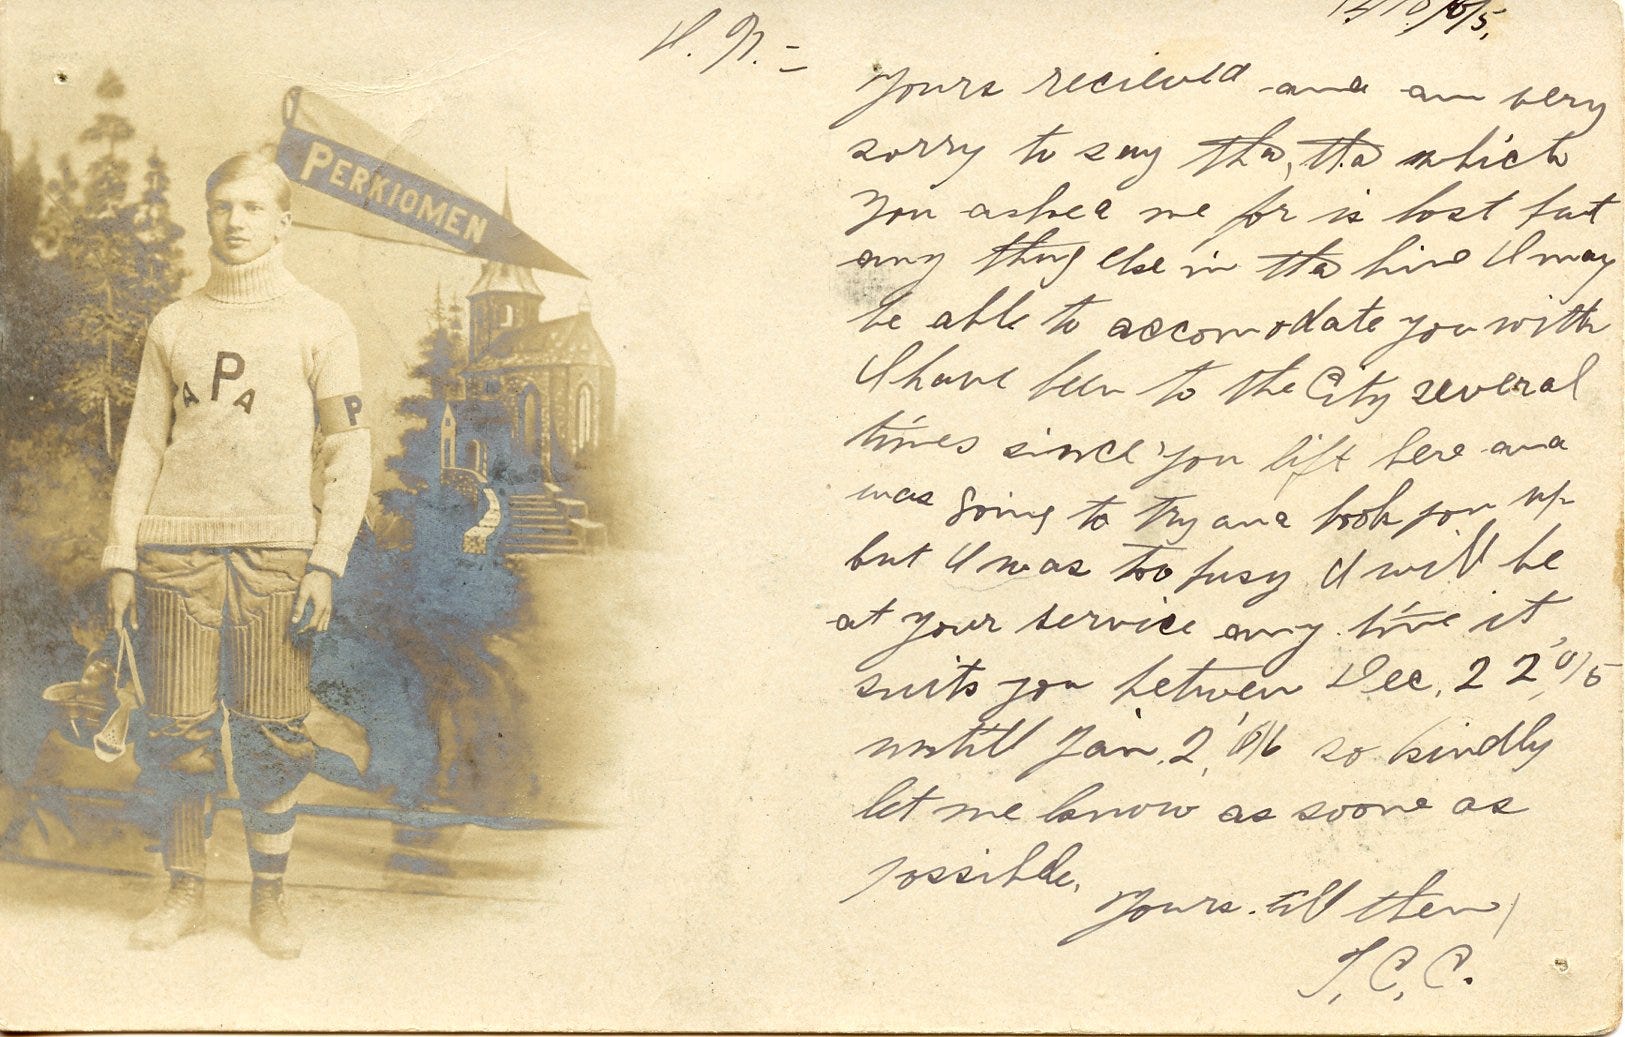 PERKIOMEN
P
A P A
P
H. N. =
Yours recieved and am very
sorry to say tha, tha which
you asked me for is lost but
any thing else in tha line I may
be able to accomodate you with
I have been to the City several
times since you lift here and
was going to try and look you up
but I was too busy I will be
at your service any time it
suits you between Dec. 22, '0/5
untill Jan. 2, '0/6 so kindly
let me know as soone as
possible.
Yours till then,
T. C. C.